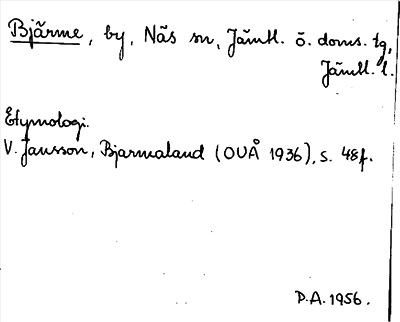 Bjärme, by, Näs sn, Jämtl. ö. doms. tg,
Jämtl. l.
Etymologi.
V. Jansson, Bjarmaland (OUÅ 1936), s. 48f.
P.A. 1956.